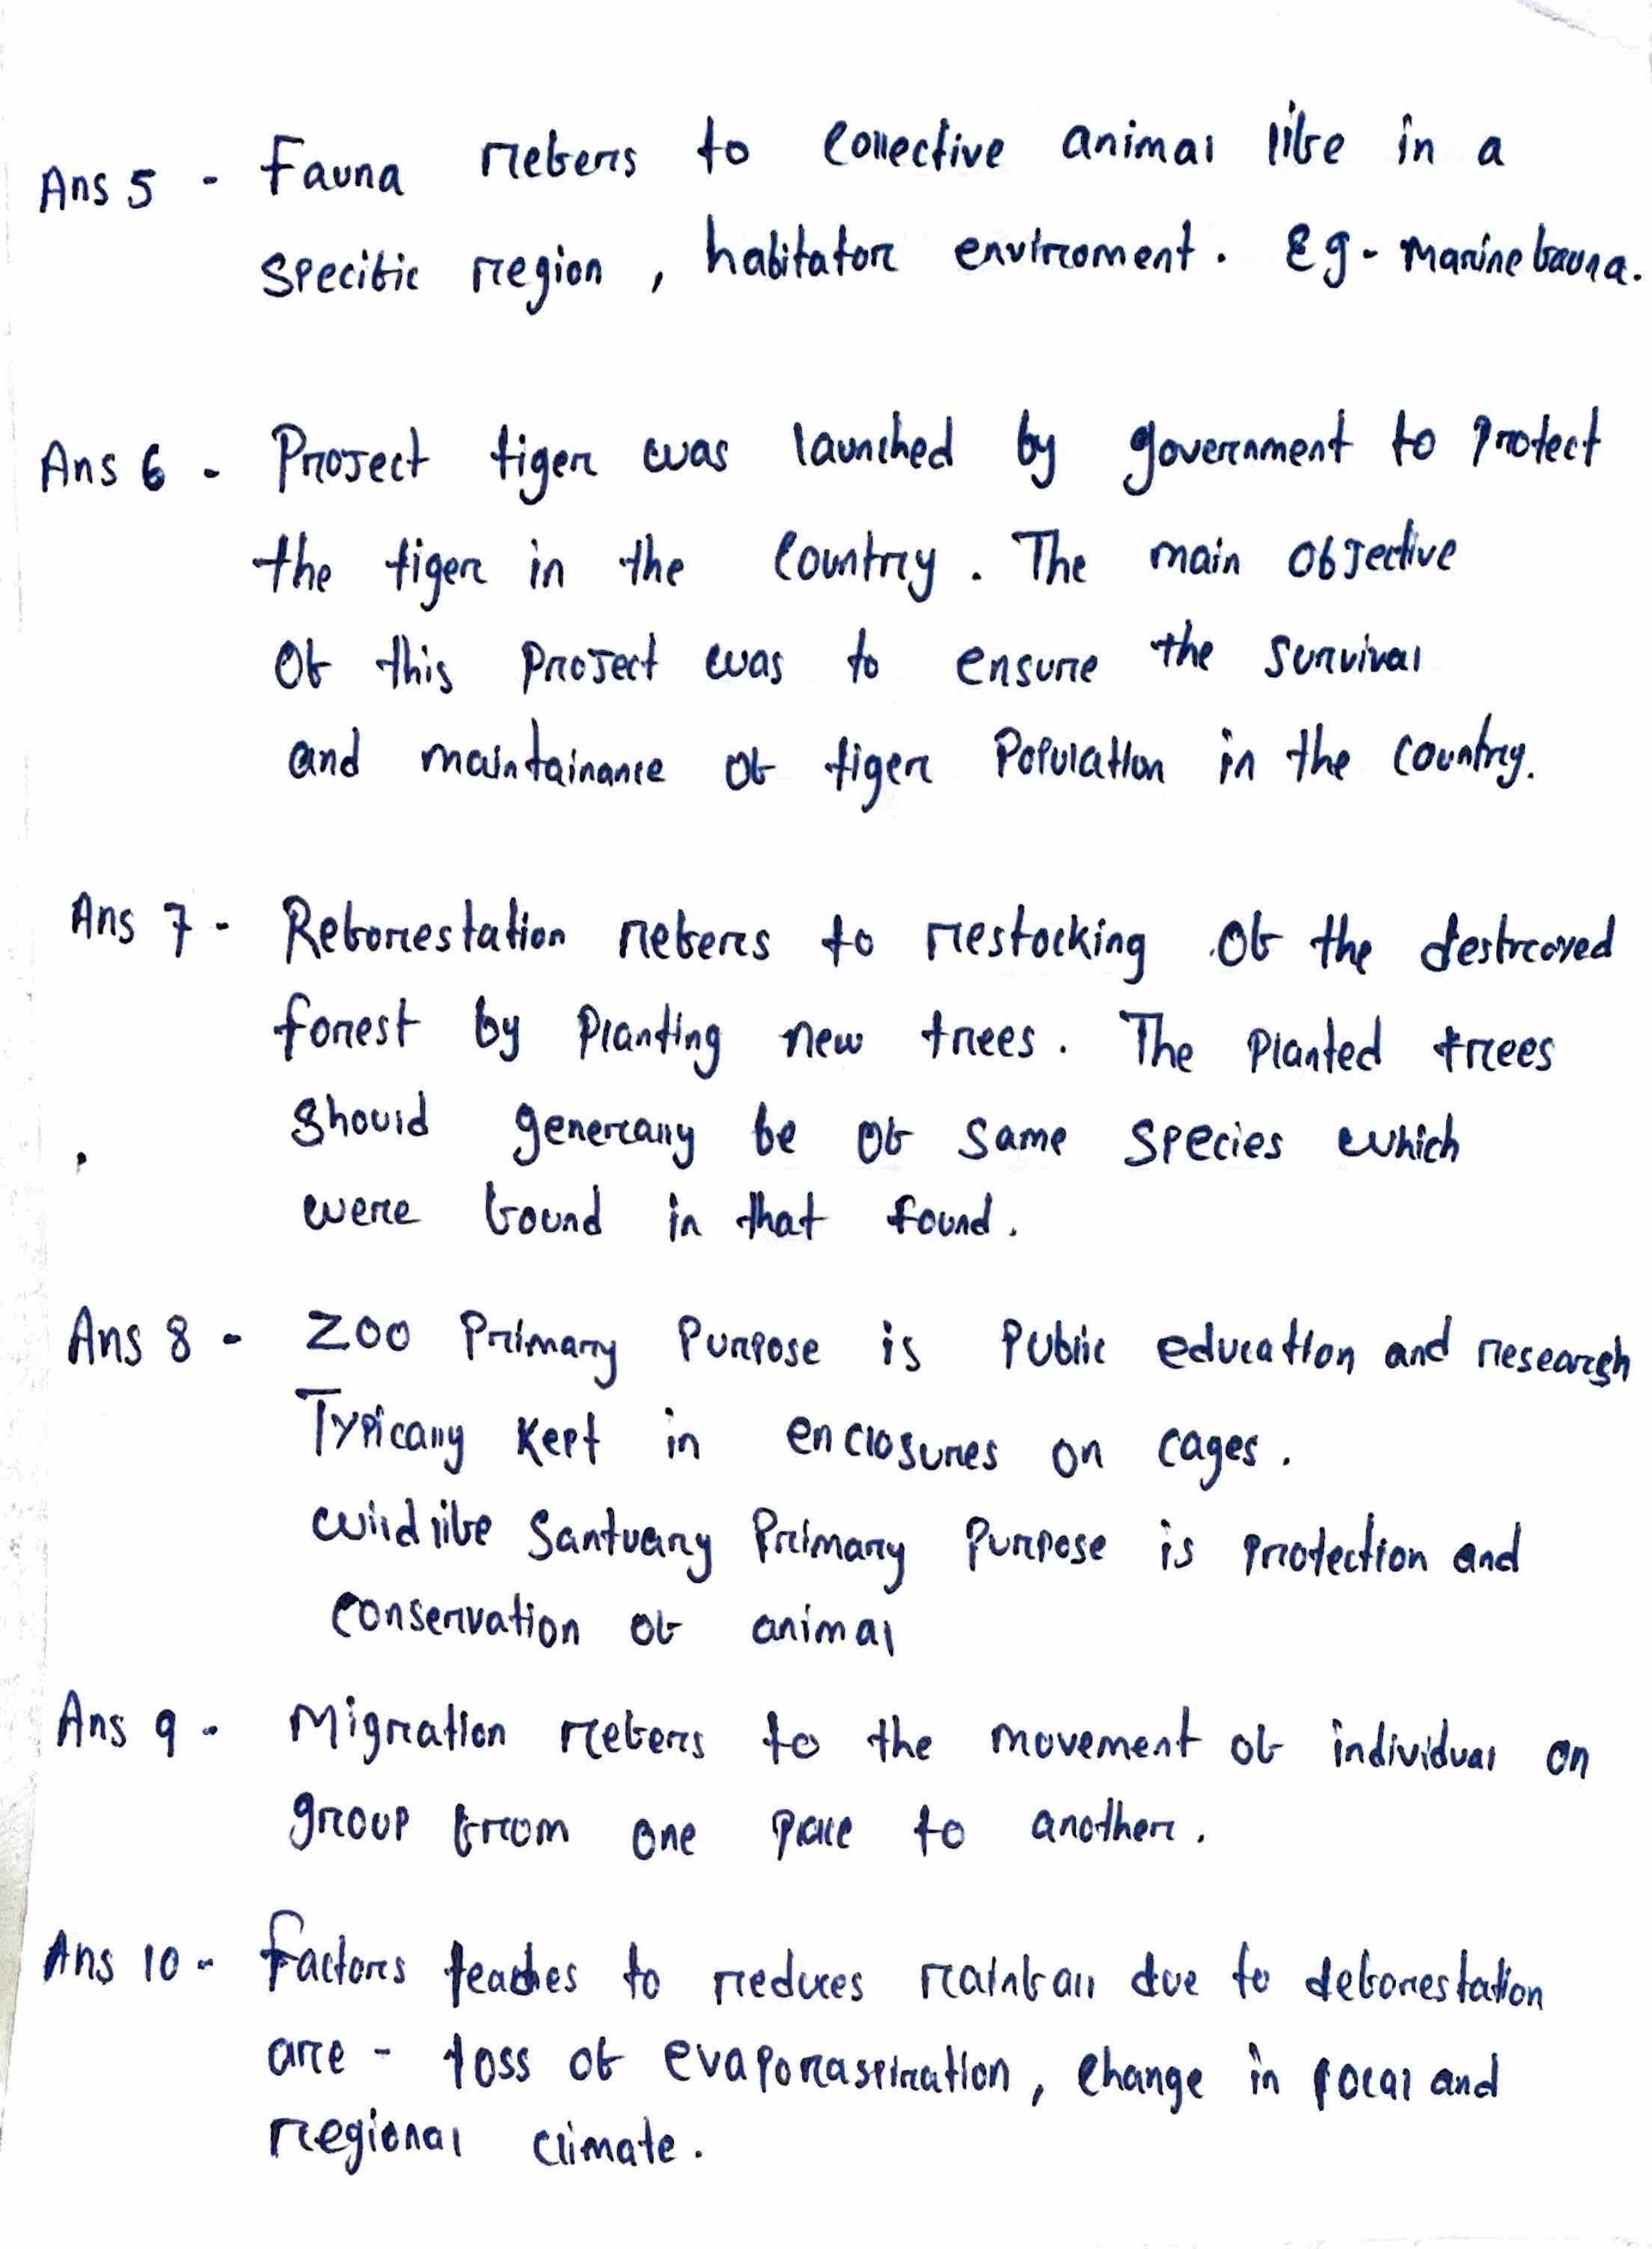 Ans 5 - Fauna refers to collective animal life in a
specific region, habitator enviroment. Eg - Marine fauna.
Ans 6 - Project tiger was launched by government to protect
the tiger in the country. The main objective
Of this project was to ensure the survival
and maintainance of tiger population in the country.
Ans 7 - Reforestation refers to restocking of the destroyed
forest by planting new trees. The planted trees
should generally be of same species which
were found in that found.
Ans 8 - Zoo Primary Purpose is public education and research
Typically kept in enclosures or cages.
wildlife Santuary Primary Purpose is protection and
conservation of animal
Ans 9 - Migration refers to the movement of individual or
group from one place to another.
Ans 10 - Factors leades to reduces rainfall due to deforestation
are - loss of evaporaspiration, change in local and
regional climate.